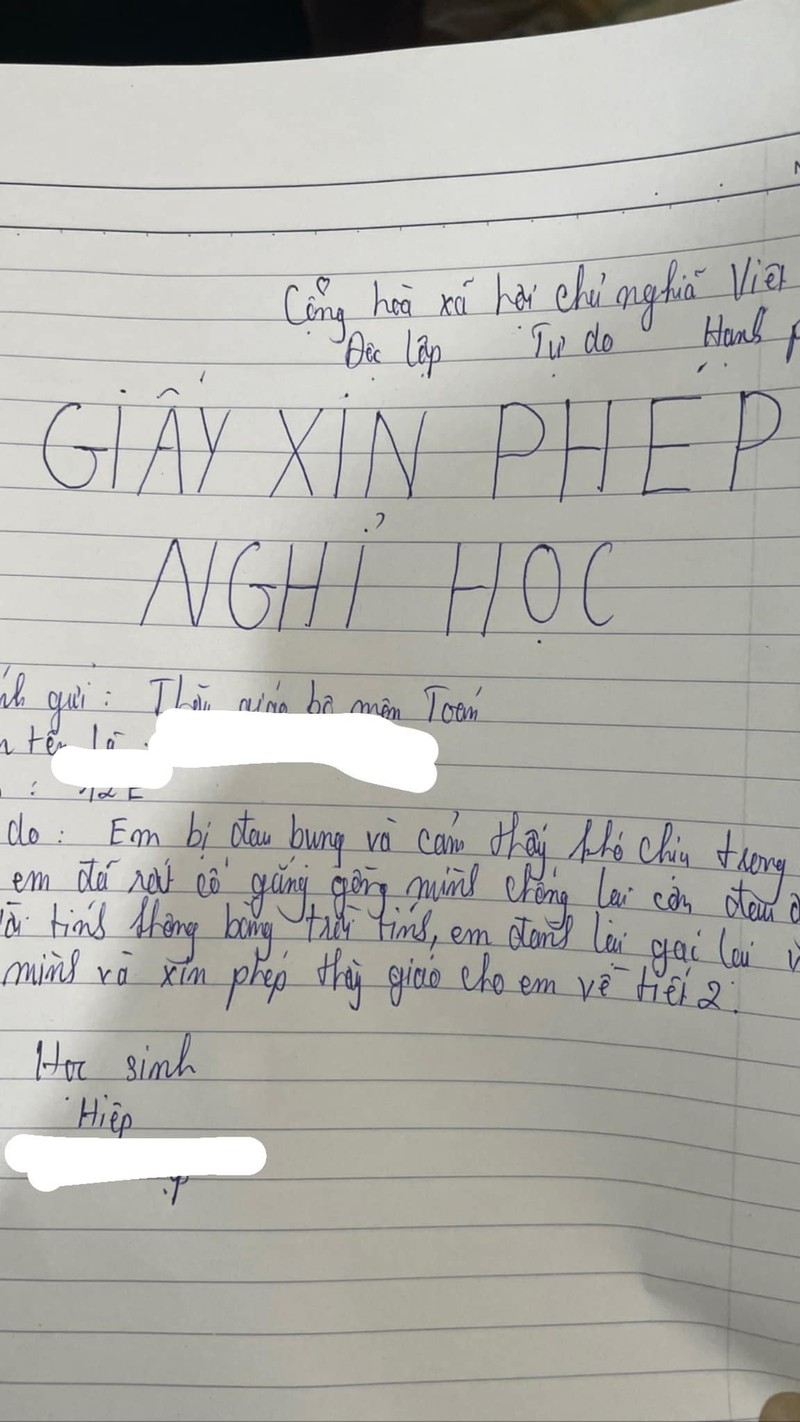 Cộng hoà xã hội chủ nghĩa Việt
Độc lập Tự do Hạnh p
GIẤY XIN PHÉP
NGHỈ HỌC
ính gửi : Thầy giáo bộ môn Toán
n tên là :
: 12E
do : Em bị đau bụng và cảm thấy khó chịu trong
em đã rất cố gắng gồng mình chống lại cơn đau
tính thông bằng trời tính, em đành lại gác lại v
mình và xin phép thầy giáo cho em về tiết 2.
Học sinh
Hiệp